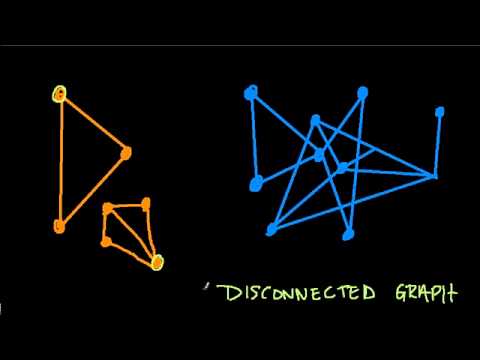 DISCONNECTED GRAPH